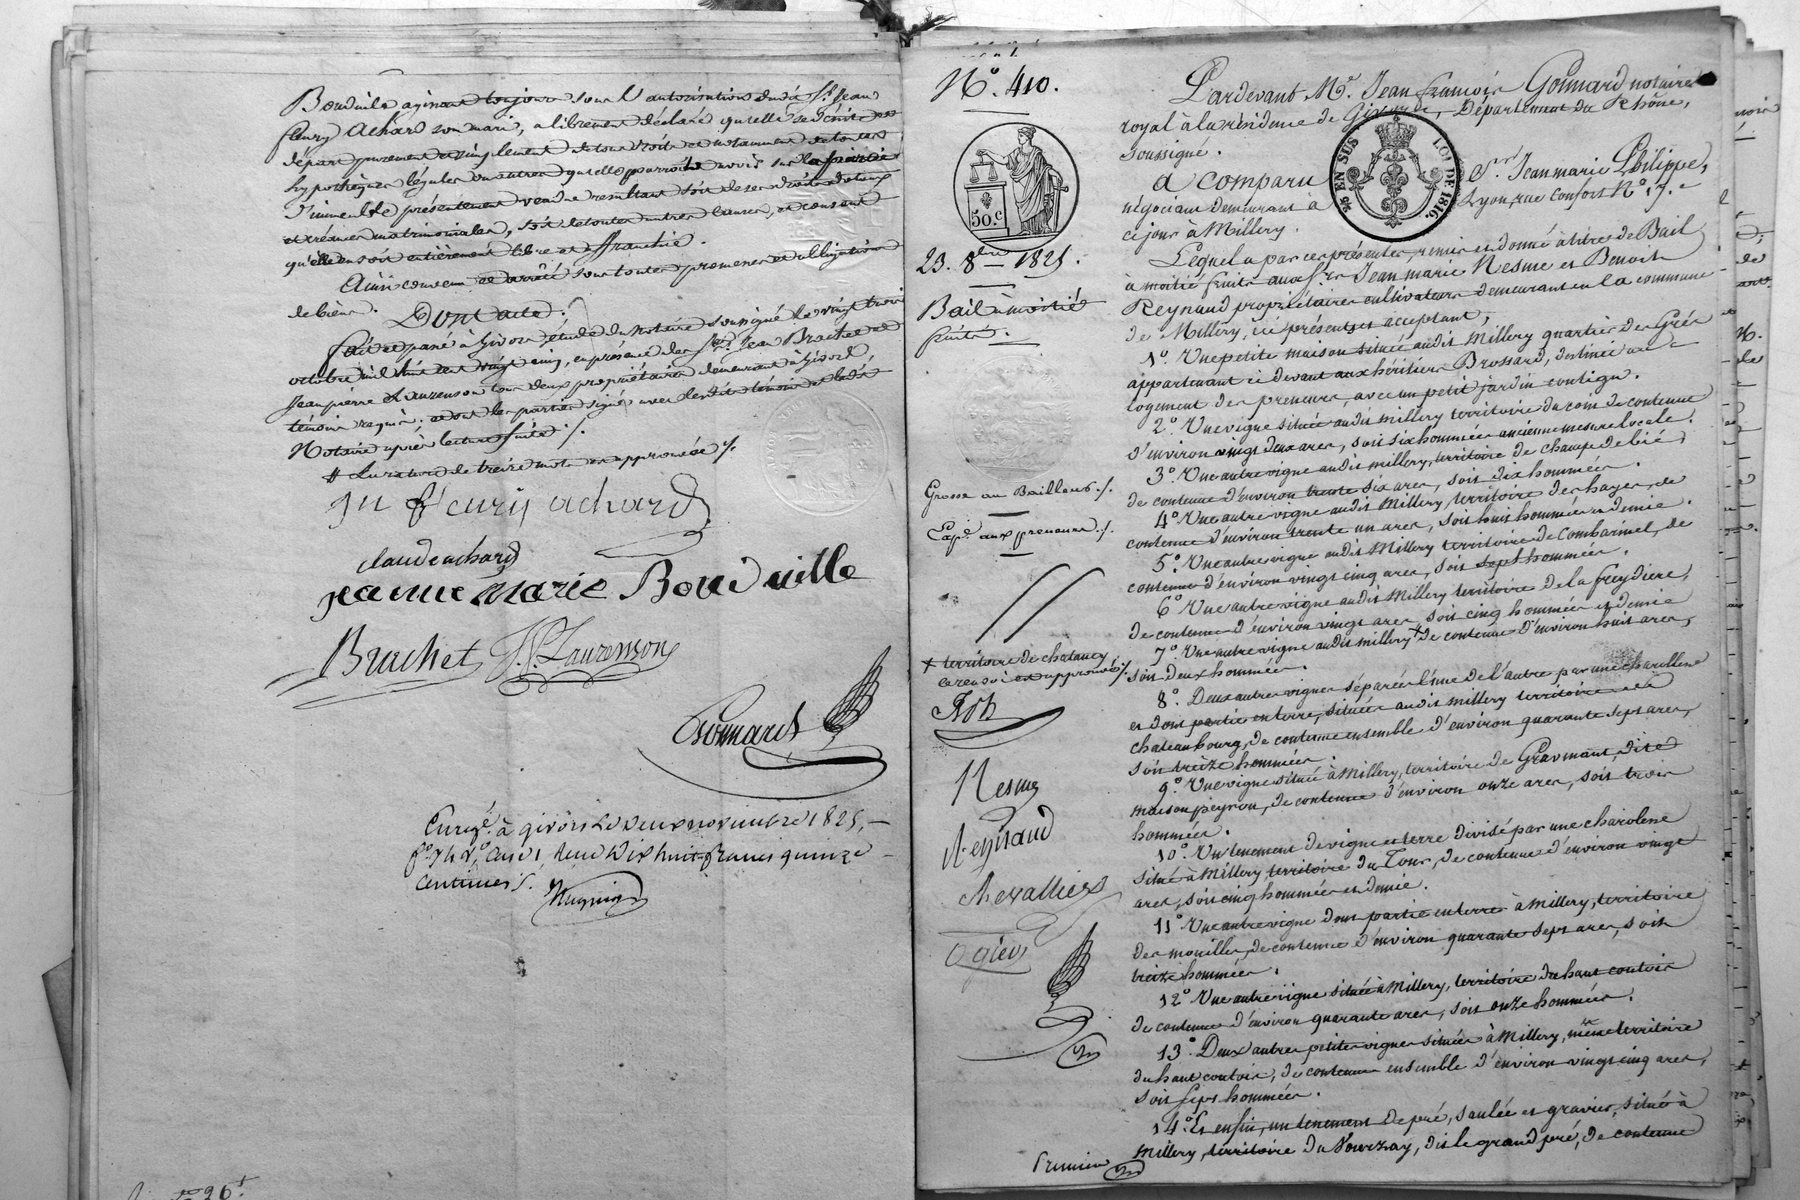 Bouduille agissant toujours sous l'autorisation dudit Sr. Jean
fleury Achard son mari, a librement déclaré qu'elle se désiste et
départ purement et simplement de tous droits et notamment de toutes
hypothèques légales ou autres qu'elle pourrait avoir sur la
l'immeuble présentement vendu résultant soit de ses droits dotaux
et créances matrimoniales, soit de toutes autres causes, et consent
qu'elle en soit entièrement libre et affranchie.
Ainsi convenu et arrêté sous toutes promesses et obligations
de biens. Dont acte.
fait et passé à Givors étude du notaire soussigné le vingt trois
octobre mil huit cent vingt cinq, en présence des Srs. Jean Brachet et
Jean pierre Laurenson tous deux propriétaires demeurant à Givors,
témoins requis. et ont les parties signé avec lesdits témoins et ledit
Notaire après lecture faite ./.
# la rature de treize mots est approuvée ./.
jn fleury achard
claude achard
jeanne marie Bouduille
Brachet J.P. Laurenson
Gonnard
Enregé. à givors le deux novembre 1825,
fo. 74 Vo. case 1, reçu dix huit francs quinze
centimes ./.
26
No. 410.
50.c
23. 8bre 1825.
Bail à moitié
fruits.
Grosse au Bailleur ./.
Expn. aux preneurs ./.
+ territoire de chatancy
ce renvoi est approuvé ./.
Nesme
Reynaud
Chevallier
Ogier
Pardevant Me. Jean françois Gonnard notaire
royal à la résidence de Givors, Département du Rhône,
soussigné.
a comparu Sr. Jean marie Philippe,
négociant demeurant à Lyon, rue confort No. 17. et
ce jour à Millery.
5c EN SUS LOI DE 1816.
Lequel a par ces présentes, remis et donné à titre de Bail
à moitié fruits aux Srs. Jean marie Nesme et Benoit
Reynaud propriétaires cultivateurs demeurant en la commune
de Millery, ici présents et acceptant;
1o. Une petite maison située audit Millery quartier des Grés
appartenant ci devant aux héritiers Brossard, destinée au
logement des preneurs, avec un petit jardin contigu.
2o. Une vigne située audit millery territoire du coin de contenue
d'environ vingt deux ares, soit six hommées ancienne mesure locale.
3o. Une autre vigne audit millery, territoire de champ de bié
de contenue d'environ trente six ares, soit dix hommées.
4o. Une autre vigne audit Millery, territoire des hayes, de
contenue d'environ trente un ares, soit huit hommées et demie.
5o. Une autre vigne audit Millery territoire de Combarinel, de
contenue d'environ vingt cinq ares, soit sept hommées.
6o. Une autre vigne audit Millery territoire de la freydière,
de contenue d'environ vingt ares, soit cinq hommées et demie
7o. Une autre vigne audit millery + de contenue d'environ huit ares,
soit deux hommées.
8o. Deux autres vignes séparées l'une de l'autre par une charollene
et dont partie en terre, situées audit millery territoire de
chateaubourg, de contenue ensemble d'environ quarante sept ares,
soit treize hommées.
9o. Une vigne située à Millery, territoire de Gravmant, dite
maison peyron, de contenue d'environ onze ares, soit trois
hommées.
10o. Un tenement de vigne et terre divisé par une charolene
situé à Millery, territoire du Tour, de contenue d'environ vingt
ares, soit cinq hommées et demie.
11o. Une autre vigne dont partie en terre à Millery, territoire
des mouilles, de contenue d'environ quarante sept ares, soit
treize hommées.
12o. Une autre vigne située à Millery, territoire du haut coutoir
de contenue d'environ quarante ares, soit onze hommées.
13o. Deux autres petites vignes situées à Millery, même territoire
du haut coutoir, de contenue ensemble d'environ vingt cinq ares,
soit sept hommées.
14o. Et enfin, un tenement de pré, saulée et gravier, situé à
Millery, territoire du Vourzay, dit le grand pré, de contenue